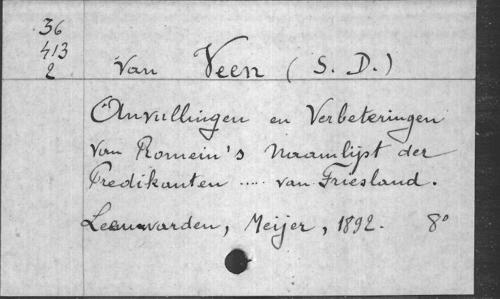 36
413
2
Van Veen (S. D.)
Anvullingen en Verbeteringen
van Romein's Naamlijst der
Predikanten ..... van Friesland.
Leeuwarden, Meijer, 1892. 8°